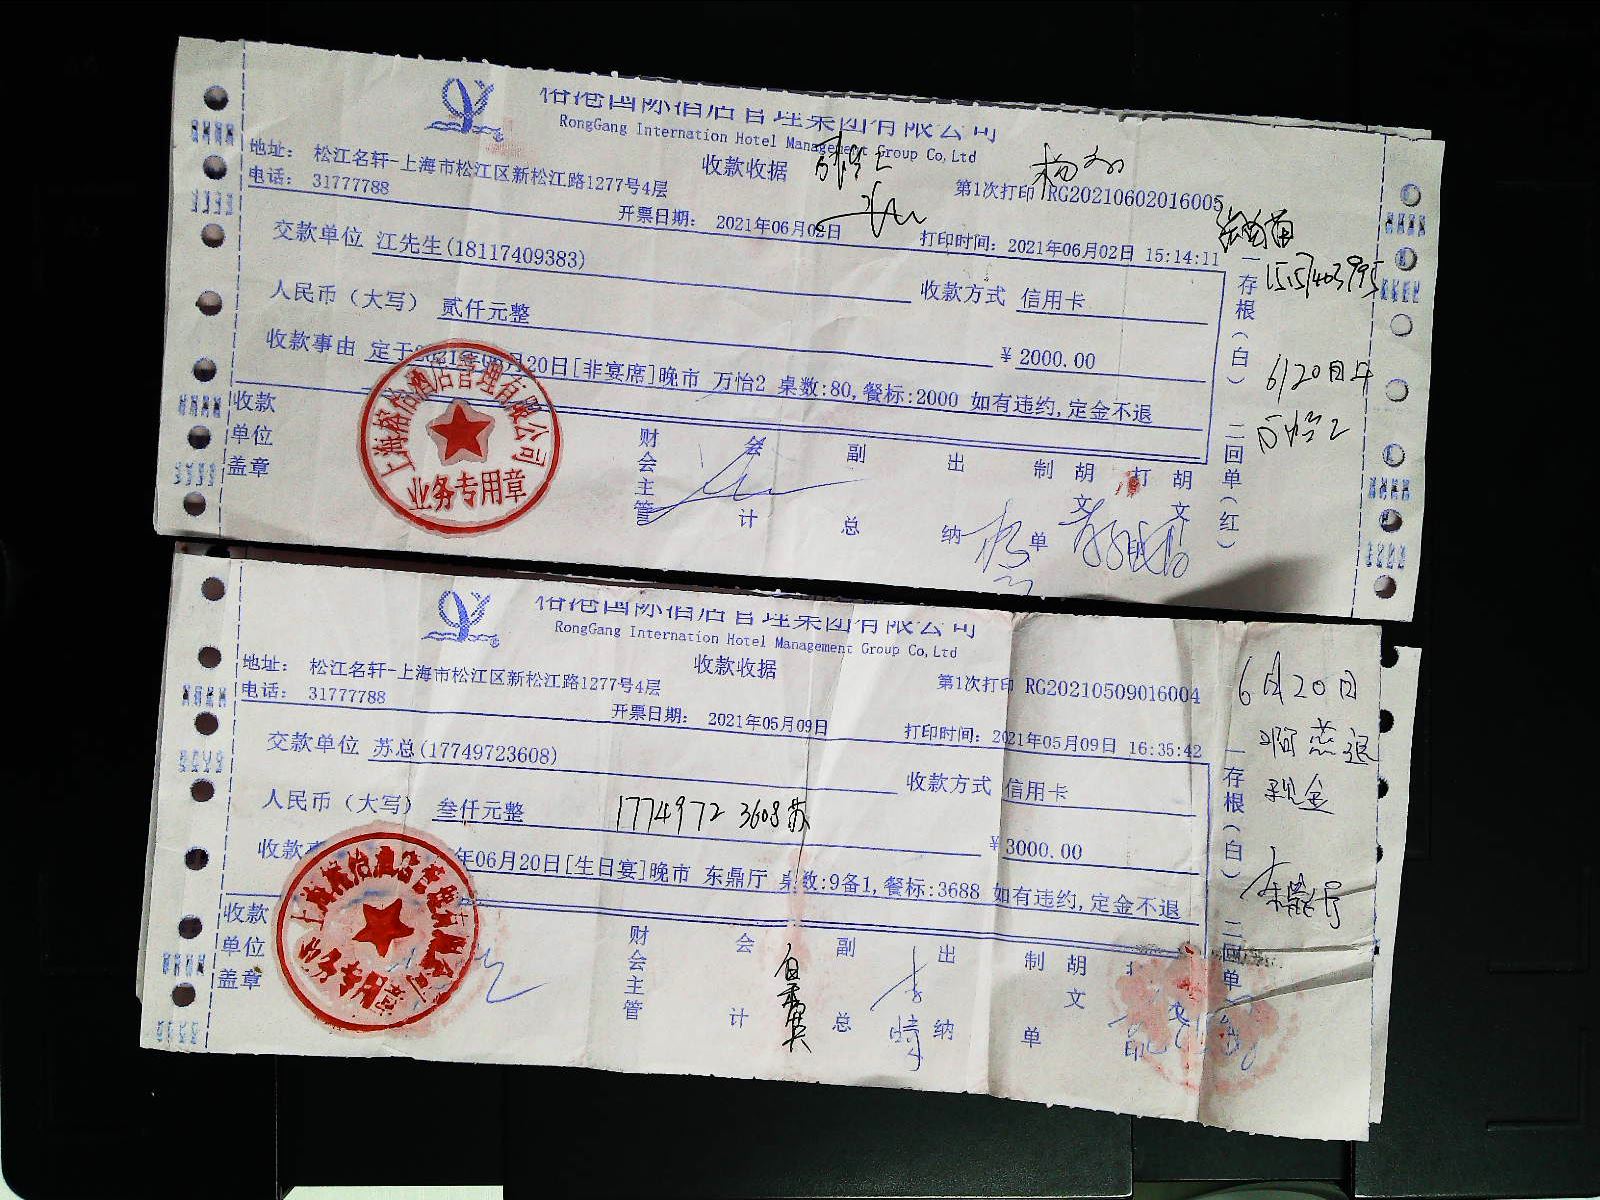 裕港国际酒店管理集团有限公司
RongGang Internation Hotel Management Group Co,Ltd
地址： 松江名轩-上海市松江区新松江路1277号4层
收款收据
第1次打印 RG20210602016005
电话： 31777788
开票日期： 2021年06月02日
打印时间：2021年06月02日 15:14:11
交款单位 江先生(18117409383)
收款方式 信用卡
人民币（大写） 贰仟元整
¥ 2000.00
收款事由 定于2021年06月20日[非宴席]晚市 万怡2 桌数:80,餐标:2000 如有违约,定金不退
收款单位盖章
财会主管 会计 副总 出纳 制单 胡文 打印 胡文
一存根（白） 二回单（红）
6/20日
上海铭怡酒店管理有限公司
业务专用章
裕港国际酒店管理集团有限公司
RongGang Internation Hotel Management Group Co,Ltd
地址： 松江名轩-上海市松江区新松江路1277号4层
收款收据
第1次打印 RG20210509016004
电话： 31777788
开票日期： 2021年05月09日
打印时间：2021年05月09日 16:35:42
交款单位 苏总(17749723608)
收款方式 信用卡
人民币（大写） 叁仟元整
17749723608苏
¥ 3000.00
收款 年06月20日[生日宴]晚市 东鼎厅 桌数:9备1,餐标:3688 如有违约,定金不退
收款单位盖章
财会主管 会计 副总 出纳 制单 胡文
一存根（白） 二回单
6月20日
现金